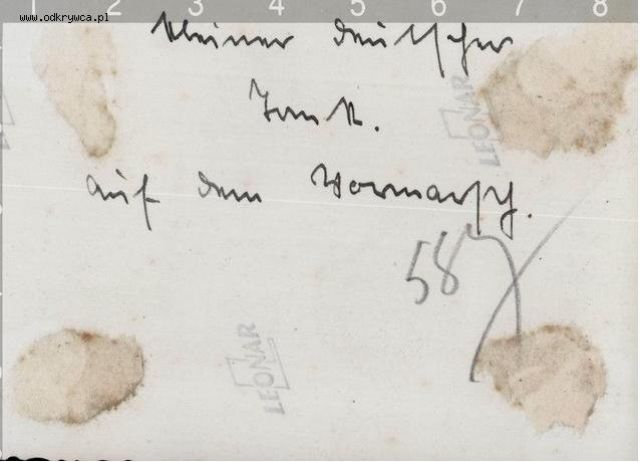 www.odkrywca.pl
1 2 3 4 5 6 7 8
kleiner deutscher
Tank.
auf dem Vormarsch.
587
LEONAR
LEONAR